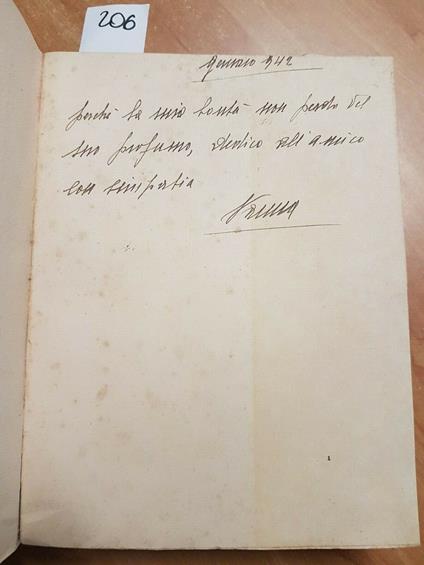 206
Gennaio 942
perchè la sua bontà non perda del
suo profumo, dedico all'amico
con simpatia
1